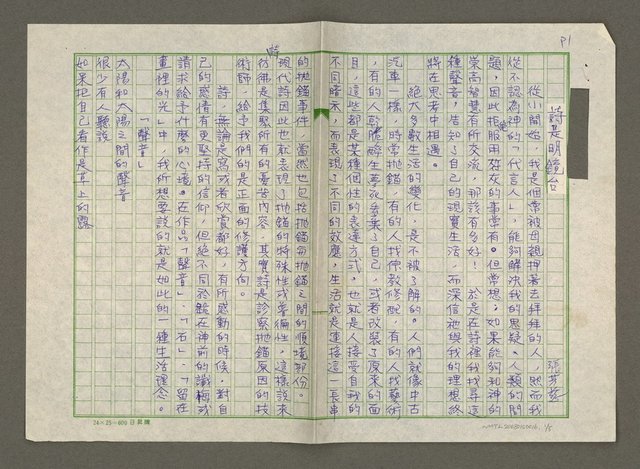 P1
詩是明鏡台
張芳慈
從小開始，我是個常被母親押著去拜拜的人，然而我
從不認為神的「代言人」，能夠解決我的思疑、人類的問
題，因此拒服用符灰的事常有。但常想：如果能夠和神的
崇高智慧有所交流，那該有多好！　於是在詩裡我找尋這
種聲音，告知了自己的現實生活，而深信祂與我的理想終
將在思考中相遇。
絕大多數生活的變化，是不被了解的。人們就像中古
汽車一樣，時常拋錨，有的人找佛教修配，有的人找藝術
，有的人醉生夢死棄了自己，或者改裝了原來的面
目，這些都是某種個性的表達方式，也就是人接受自我的
不同暗示，而表現了不同的效應，生活就是連接這一長串
的拋錨事件，當然也包括拋錨與拋錨之間的順境部份。
現代詩因此也就表現了拋錨的特殊性或普徧性，這樣說來
彷彿是集聚所有的憂苦內容，其實詩是診察拋錨原因的技
術師，給予我們的是正面的修護方向。
詩，無論是寫或者欣賞都好，有所感動的時候，對自
己的感情有更堅持的信仰，但絕不同於跪在神前的懺悔或
請求給予什麼的心境。在作品「聲音」、「石」、「留在
畫裡的光」中，我所想要說的就是如此的一種生活理念。
「聲音」
太陽和太陽之間的聲音
很少有人聽說
如果把自己看作是草上的露
24×25=600 日昇牌
NMTL20080150016, 1/5